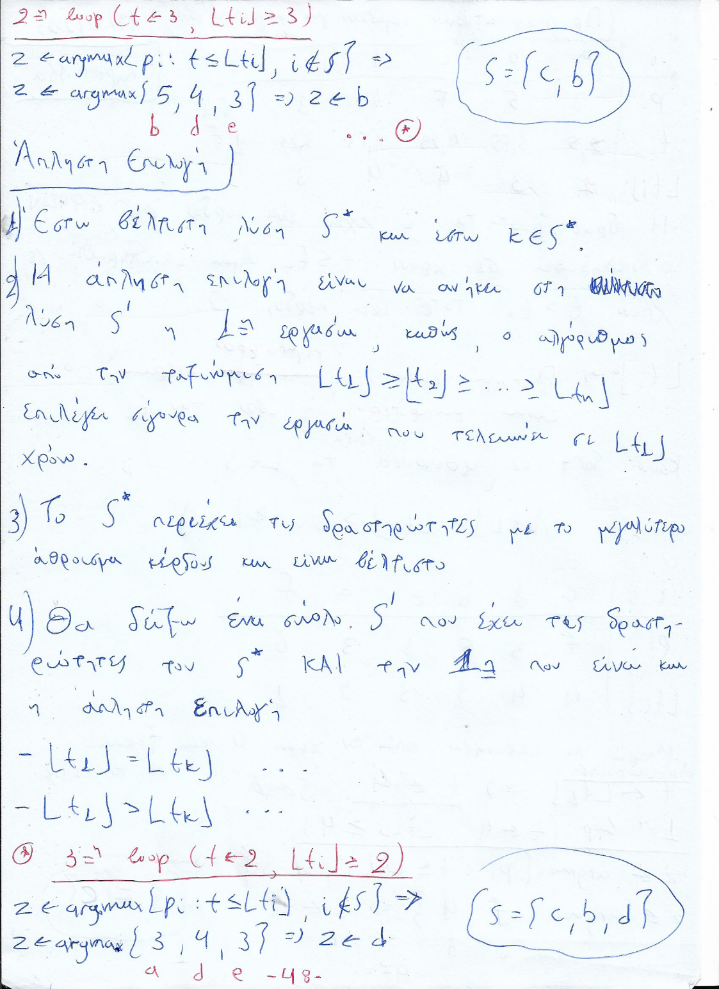 2η loop (t ← 3, ⌊ti⌋ ≥ 3)
z ← argmax{pi: t ≤ ⌊ti⌋, i ∉ S} =>
z ← argmax{5, 4, 3} => z ← b
b d e
S = {c, b}
... (*)
Άπληστη Επιλογή
1) Έστω βέλτιστη λύση S* και έστω k ∈ S*.
2) Η άπληστη επιλογή είναι να ανήκει στη
λύση S' η 1η εργασία, καθώς, ο αλγόριθμος
από την ταξινόμιση ⌊t1⌋ ≥ ⌊t2⌋ ≥ ... ≥ ⌊tn⌋
επιλέγει σίγουρα την εργασία που τελειώνει σε ⌊t1⌋
χρόνο.
3) Το S* περιέχει τις δραστηριότητες με το μεγαλύτερο
άθροισμα κέρδους και είναι βέλτιστο
4) Θα δείξω ένα σύολο. S' που έχει τις δραστη-
ριότητες του S* ΚΑΙ την 1η που είναι και
η άπληστη επιλογή
- ⌊t1⌋ = ⌊tk⌋ ...
- ⌊t1⌋ > ⌊tk⌋ ...
(*) 3η loop (t ← 2, ⌊ti⌋ ≥ 2)
z ← argmax{pi: t ≤ ⌊ti⌋, i ∉ S} =>
z ← argmax{3, 4, 3} => z ← d
a d e -48-
S = {c, b, d}